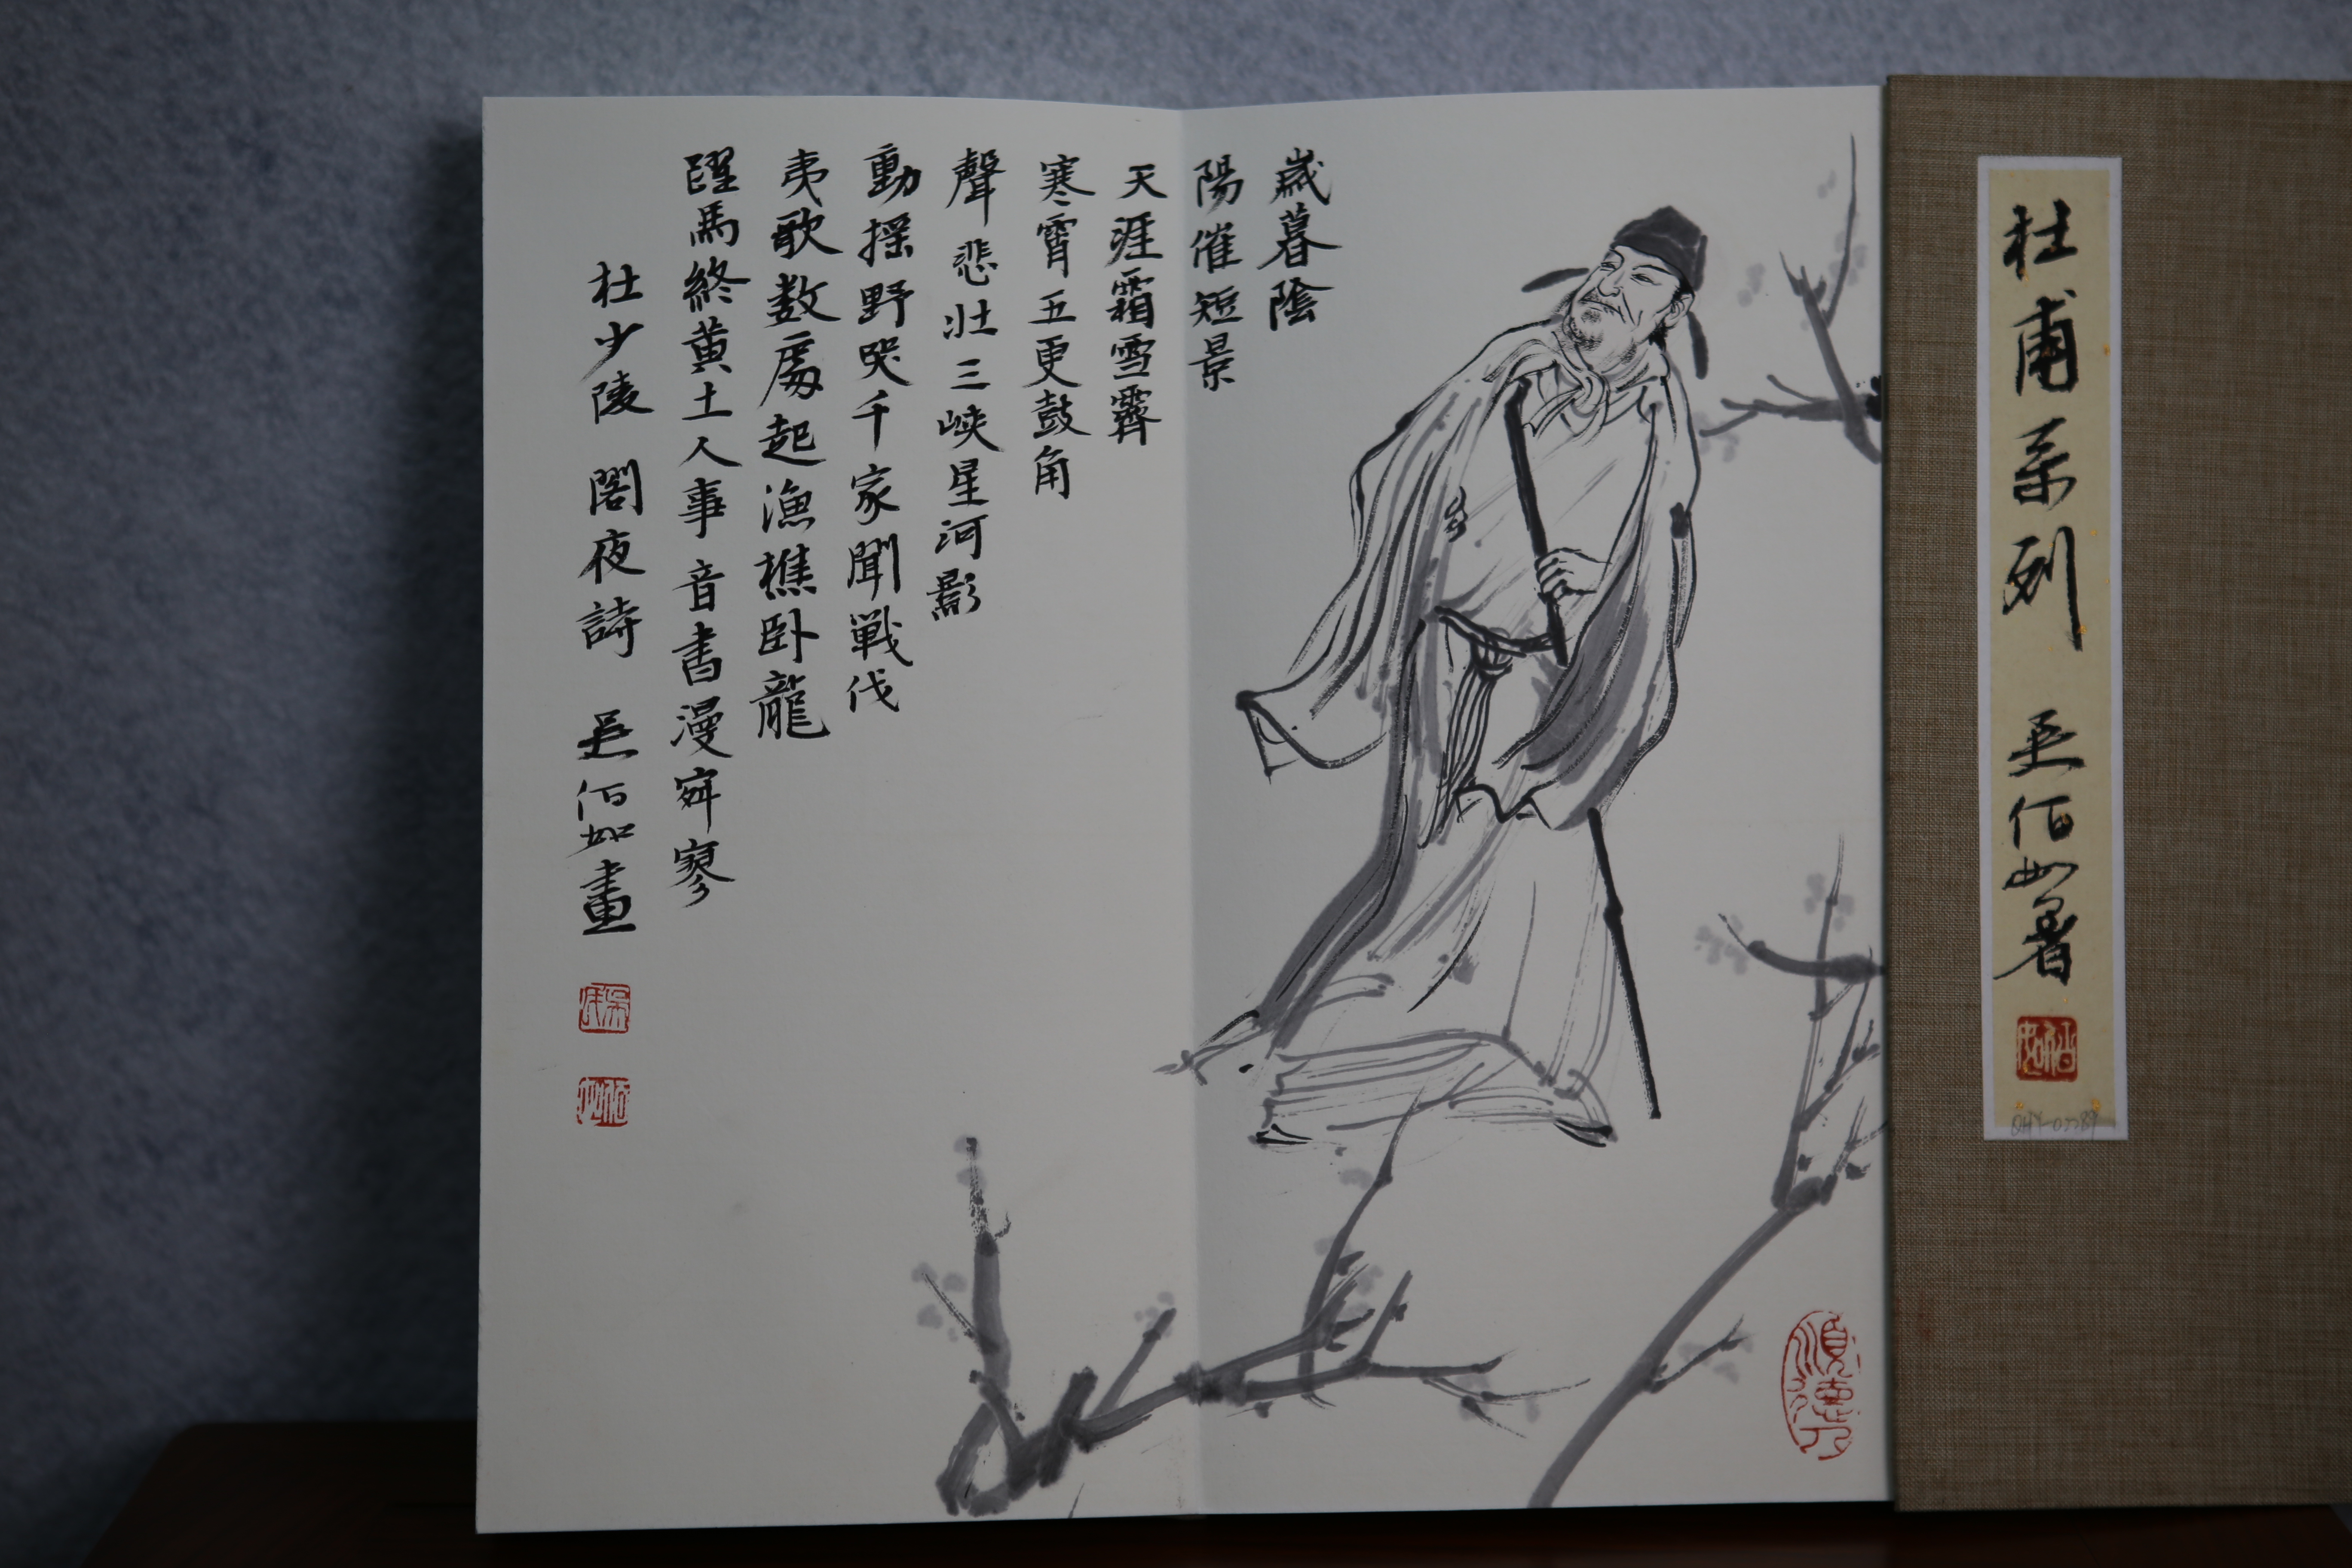 杜甫系列 吴佰如署
歲暮陰
陽催短景
天涯霜雪霽
寒霄五更鼓角
聲悲壯三峽星河影
動摇野哭千家聞戰伐
夷歌数處起漁樵卧龍
躍馬終黄土人事音書漫寂寥
杜少陵 閣夜詩 吴佰如畫